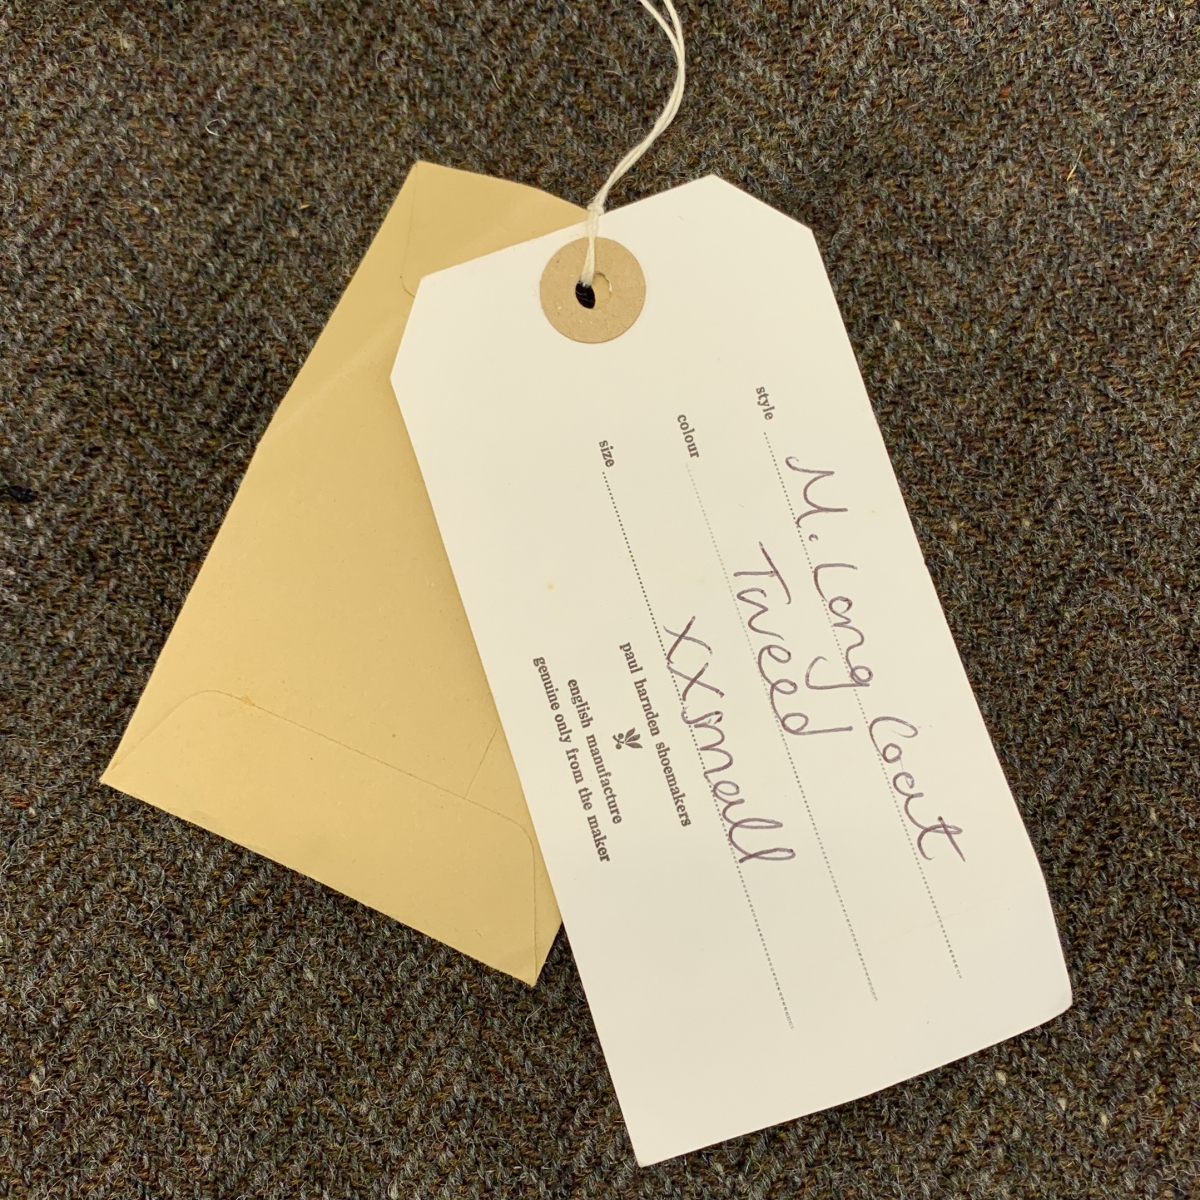 style M. Long Coat
colour Tweed
size xxsmall
paul harnden shoemakers
english manufacture
genuine only from the maker